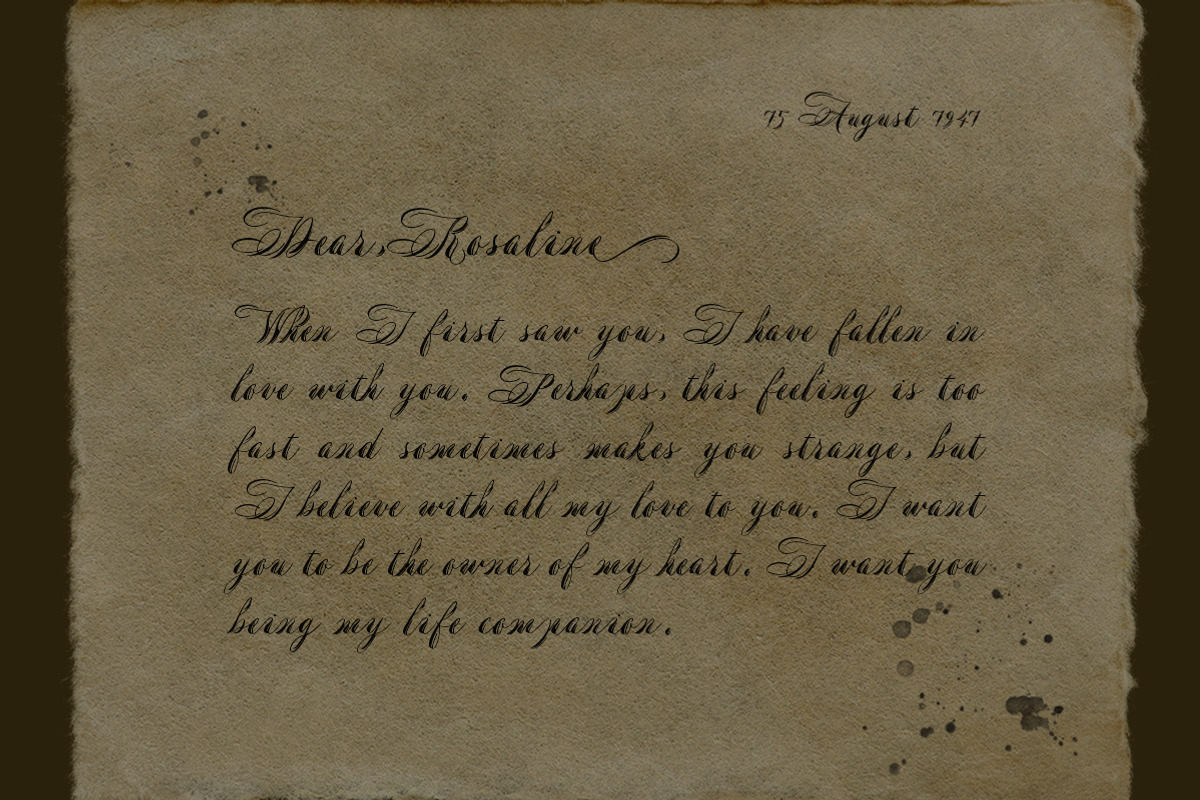 15 August 1947
Dear, Rosaline
When I first saw you, I have fallen in
love with you. Perhaps, this feeling is too
fast and sometimes makes you strange, but
I believe with all my love to you. I want
you to be the owner of my heart. I want you
being my life companion.